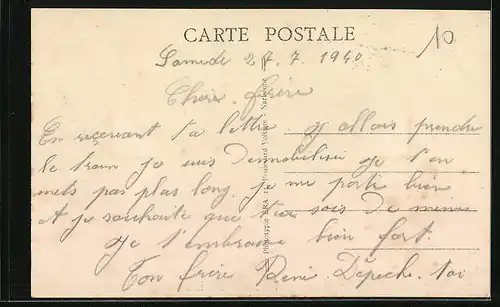 CARTE POSTALE
10
Samedi 27.7.1940
Cher frère
En recevant ta lettre j'allais prendre
le train je suis demobilisé je t'en
mets pas plus long. je me porte bien
et je souhaite que tu sois de meme
je t'embrasse bien fort.
Ton frère René. Dépeche. toi
Narbonne